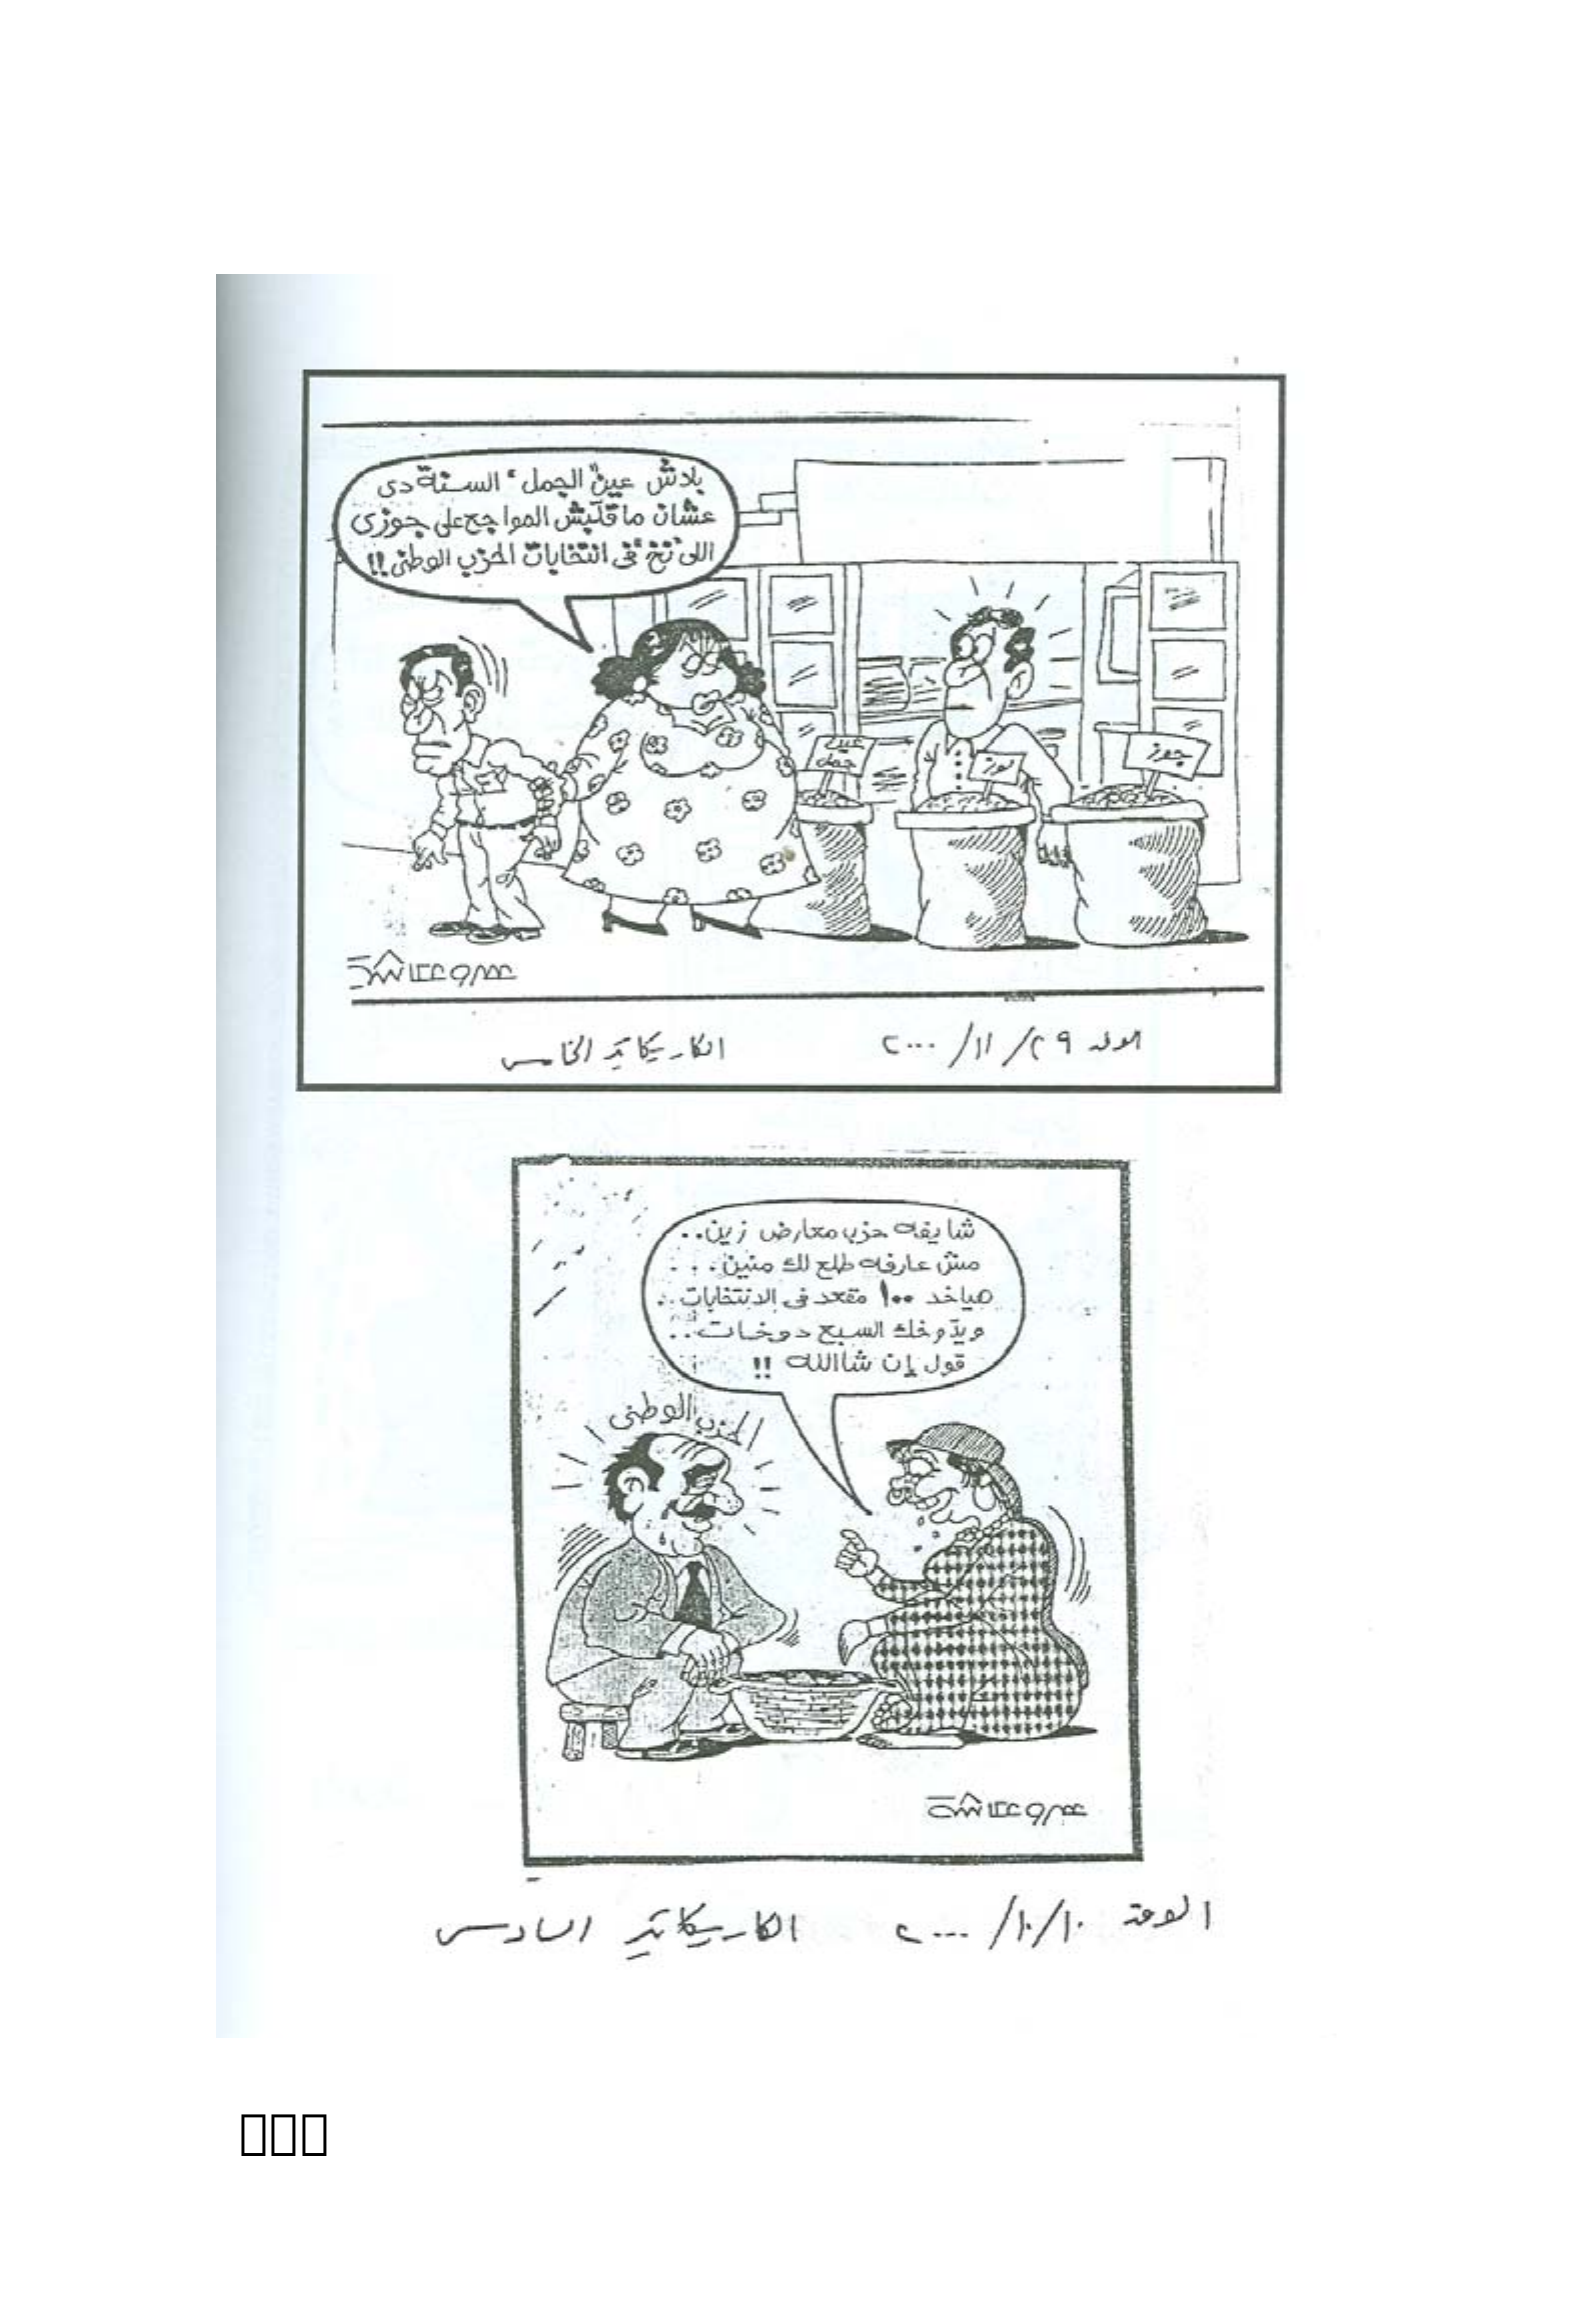 بلاش عين "الجمل" السنة دى
عشان ما قلبش المواجع على جوزى
اللى "نخ" فى انتخابات الحزب الوطنى !!
عين
جمل
لوز
جوز
عمرو عكاشة
الوفد ٢٩ / ١١ / ٢٠٠٠ الكاريكاتير الخامس
شايفه حزب معارض زين ..
مش عارفه طلع لك منين ...
هياخد ١٠٠ مقعد فى الانتخابات ..
ويدوخك السبع دوخات ..
قول إن شاالله !!
الحزب الوطنى
عمرو عكاشة
الوفد ١٠ / ١٠ / ٢٠٠٠ الكاريكاتير السادس